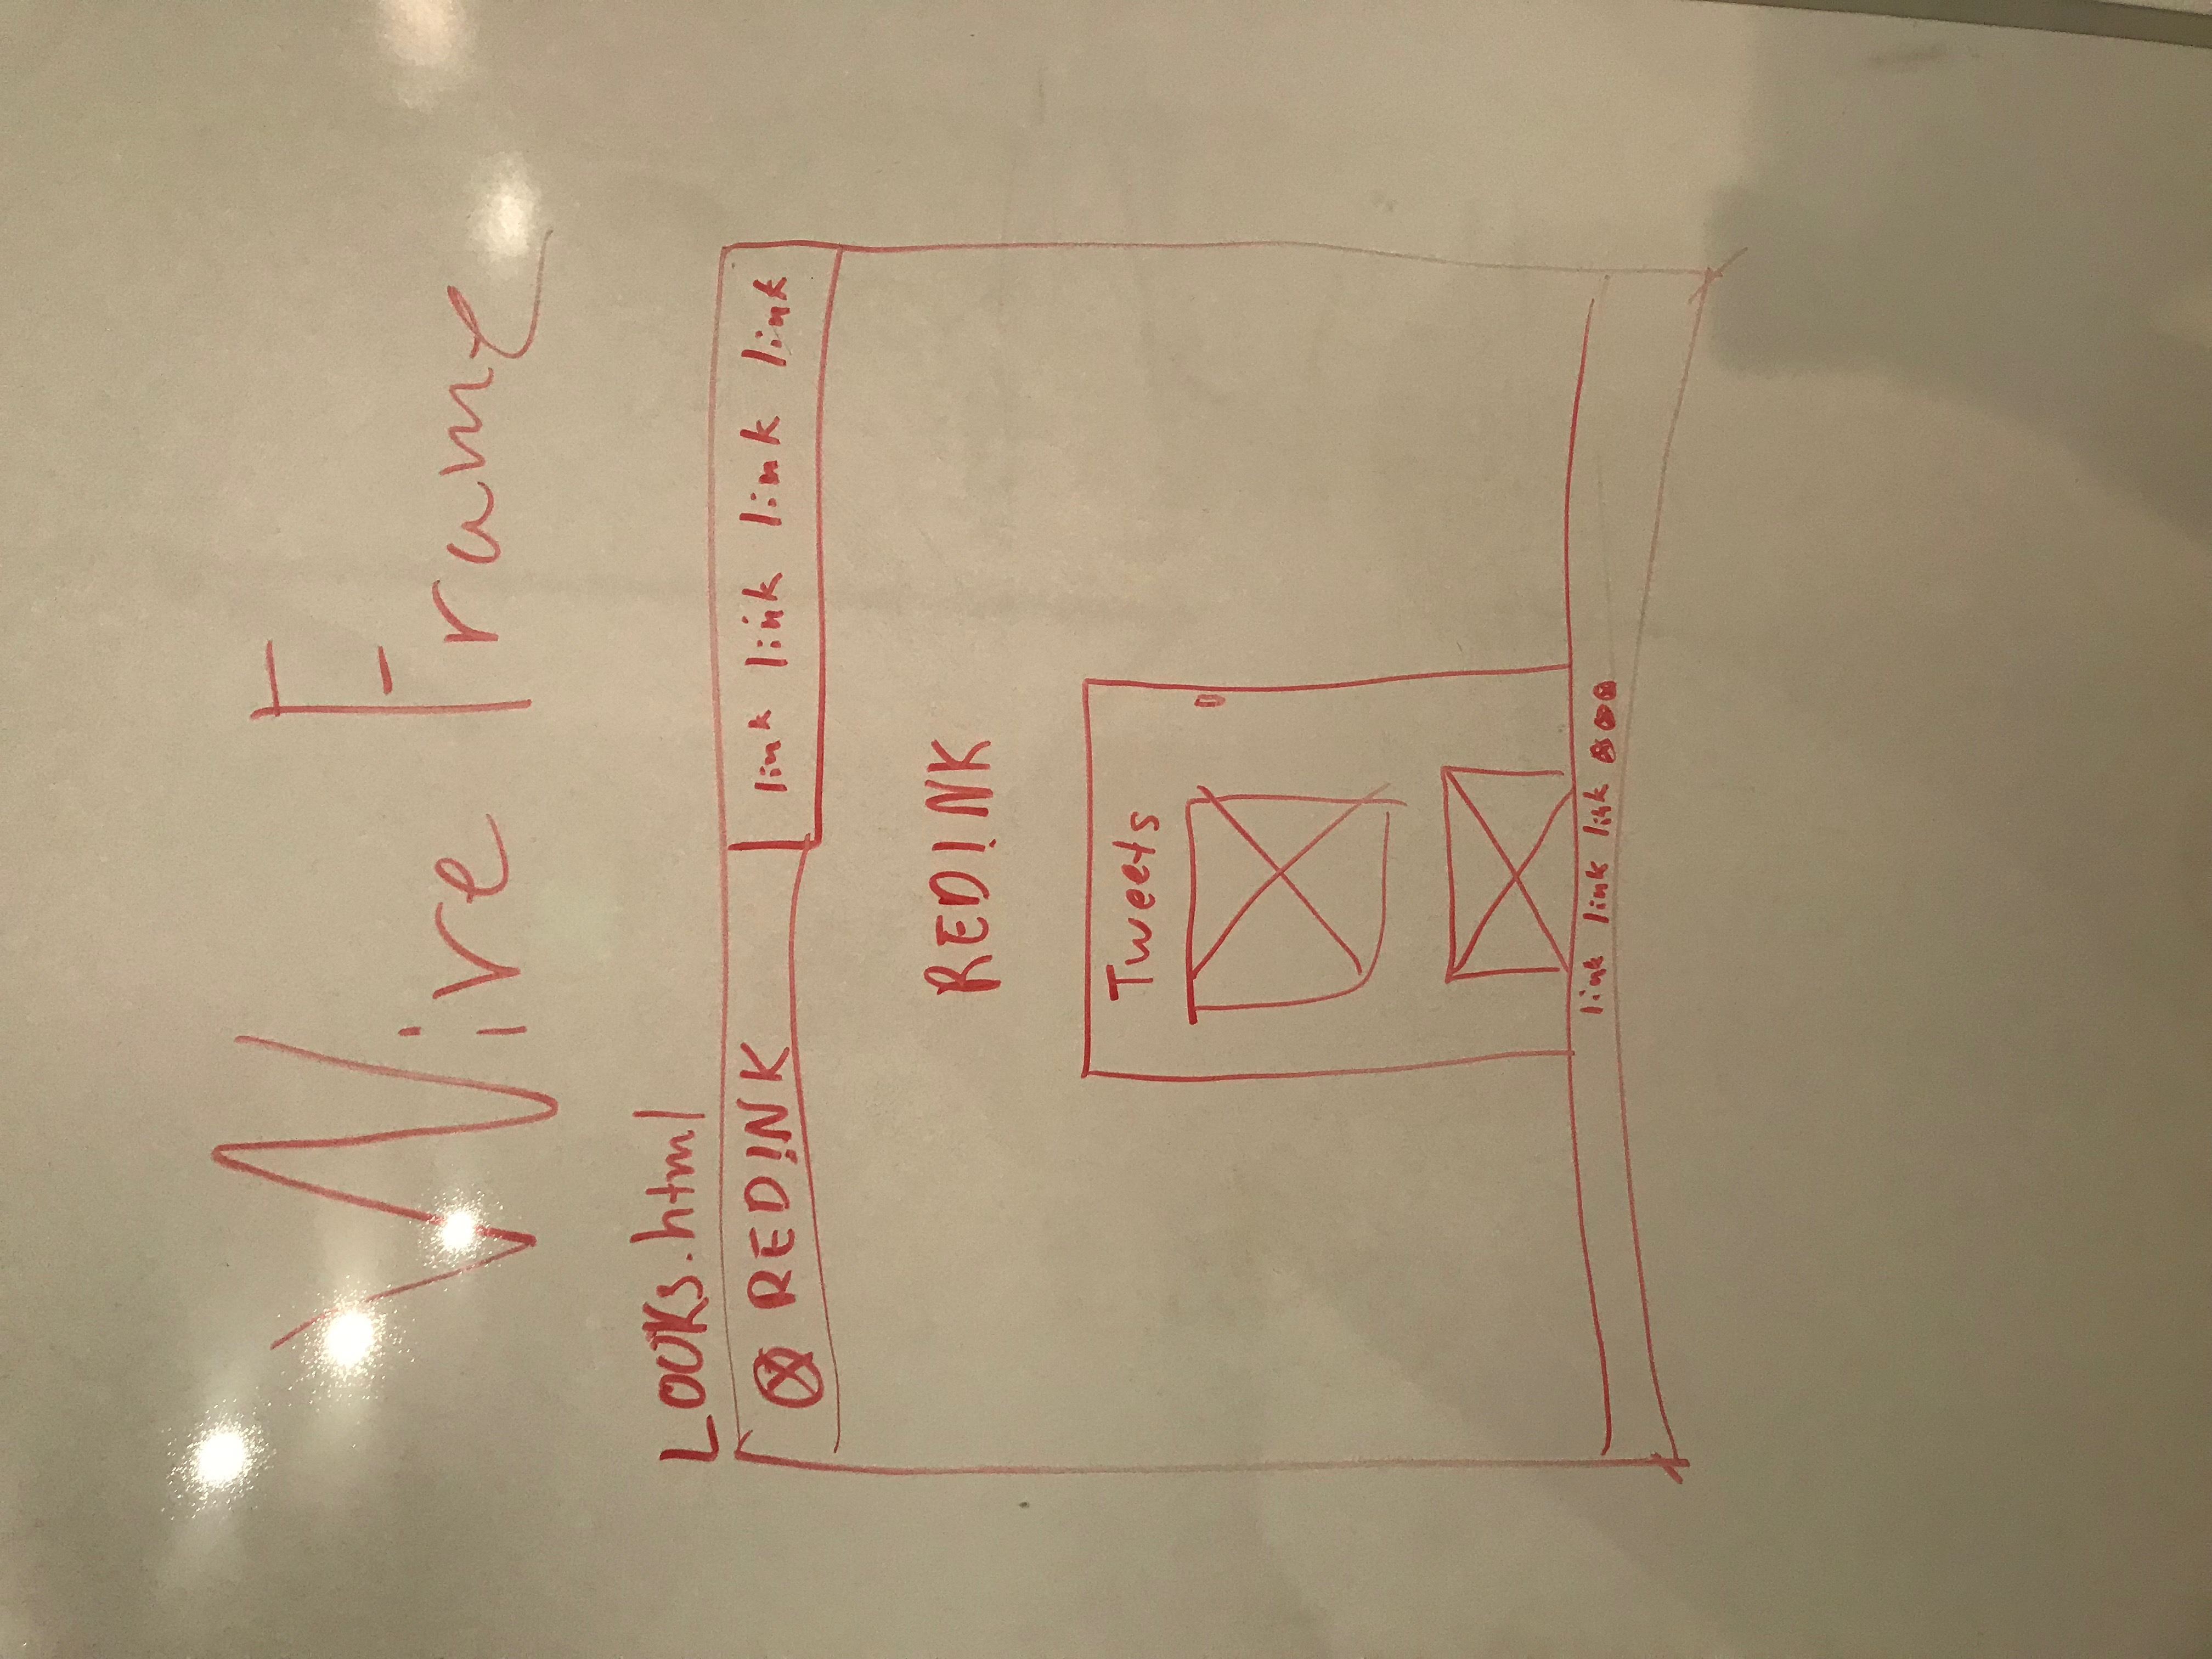 Wire Frame
LOOKs.html
RED!NK link link link link
RED!NK
Tweets
link link link